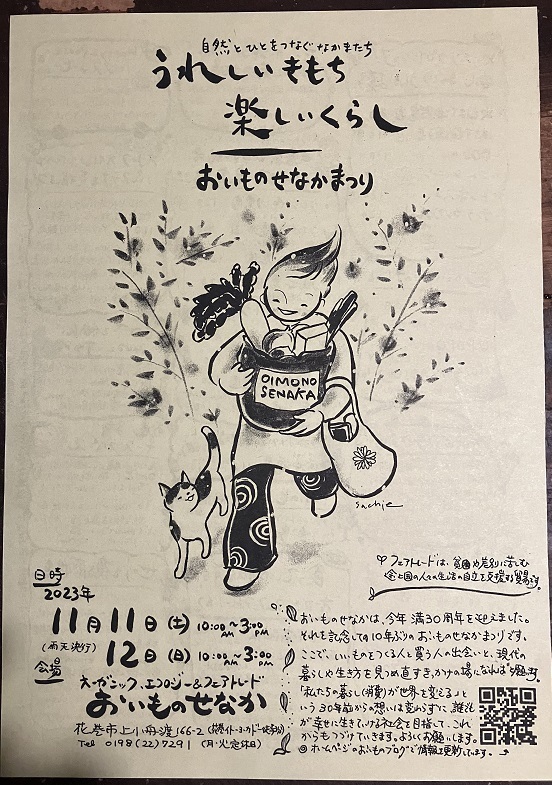 自然とひとをつなぐなかまたち
うれしいきもち
楽しいくらし
おいものせなかまつり
OIMONO
SENAKA
sachie
フェアトレードは、貧困や差別に苦しむ
途上国の人々の生活の自立を支援する貿易です。
日時
2023年
11月11日(土) 10:00AM~3:00PM
(雨天決行)
12日(日) 10:00AM~3:00PM
会場
オーガニック、エコロジー&フェアトレード
おいものせなか
花巻市上小舟渡166-2
Tel 0198(22)7291 (月・火定休日)
おいものせなかは、今年満30周年を迎えました。
それを記念しての10年ぶりのおいものせなかまつりです。
ここで、いいものをつくる人と買う人の出会いと、現代の
暮らしや生き方を見つめ直すきっかけの場になればと願います。
「私たちの暮らし(消費)が世界を変える」と
いう30年前からの想いは変わらずに、誰もが
幸せに生きていける社会を目指して、これ
からもつづけていきます。よろしくお願いします。
◎ホームページのおいものブログで情報を更新しています。